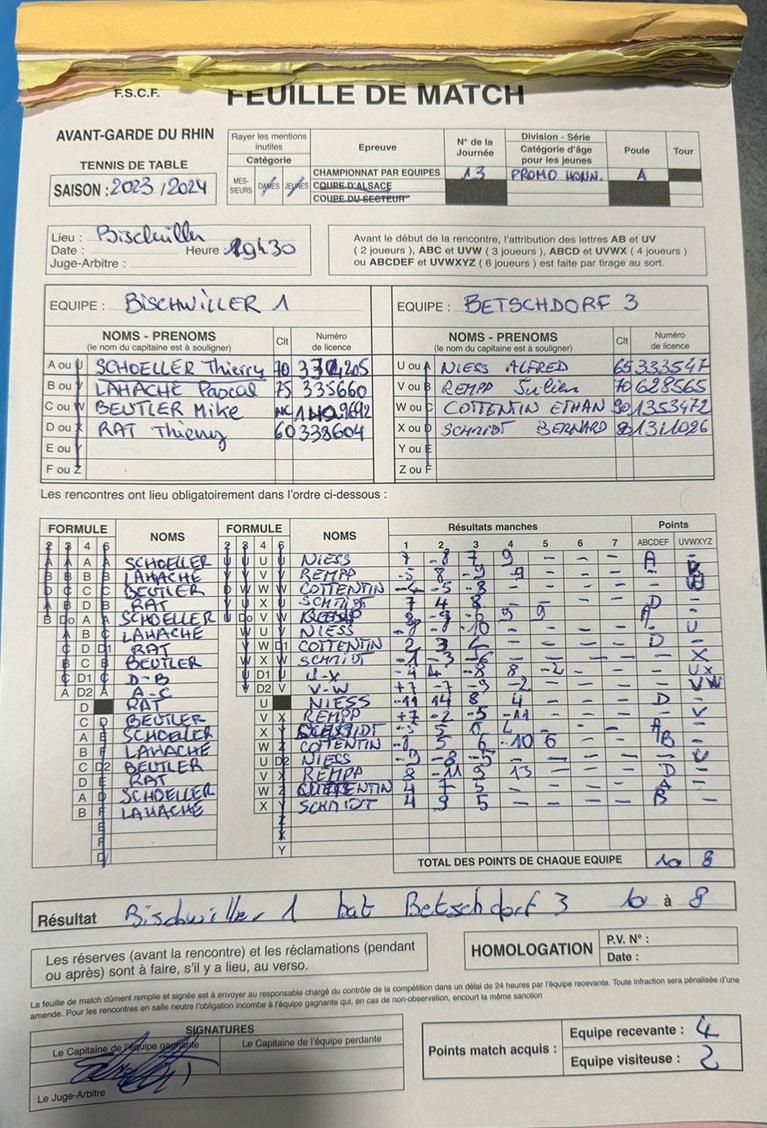 F.S.C.F.
FEUILLE DE MATCH
AVANT-GARDE DU RHIN
TENNIS DE TABLE
SAISON : 2023 / 2024
Rayer les mentions inutiles
Catégorie
MES-SIEURS DAMES JEUNES
Epreuve
CHAMPIONNAT PAR EQUIPES
COUPE D'ALSACE
COUPE DU SECTEUR
N° de la Journée
13
Division - Série
Catégorie d'âge pour les jeunes
PROMO HONN.
Poule
A
Tour
Lieu : Bischwiller
Date : Heure : 19h30
Juge-Arbitre :
Avant le début de la rencontre, l'attribution des lettres AB et UV
( 2 joueurs ), ABC et UVW ( 3 joueurs ), ABCD et UVWX ( 4 joueurs )
ou ABCDEF et UVWXYZ ( 6 joueurs ) est faite par tirage au sort.
EQUIPE : BISCHWILLER 1
EQUIPE : BETSCHDORF 3
NOMS - PRENOMS
(le nom du capitaine est à souligner)
Clt
Numéro de licence
NOMS - PRENOMS
(le nom du capitaine est à souligner)
Clt
Numéro de licence
A ou U SCHOELLER Thierry 70
U ou A NIESS ALFRED 65 333547
B ou V LAHACHE Pascal 75 335660
V ou B REMPP Julien 70 628565
C ou W BEUTLER Mike NC
W ou C COTTENTIN ETHAN 90 1353472
D ou X RAT Thierry 60 338604
X ou D SCHMIDT BERNARD 1311026
E ou Y
Y ou E
F ou Z
Z ou F
Les rencontres ont lieu obligatoirement dans l'ordre ci-dessous :
FORMULE NOMS FORMULE NOMS Résultats manches Points
2 3 4 6 2 3 4 6 1 2 3 4 5 6 7 ABCDEF UVWXYZ
A SCHOELLER U NIESS 7 -8 7 9 - - - A -
B LAHACHE V REMPP -5 8 -9 -9 - - - -
C BEUTLER W COTTENTIN -4 -5 -8 - - - - -
D RAT X SCHMIDT 7 4 8 - - - - D -
A SCHOELLER V REMPP 9 9 - - A -
B LAHACHE U NIESS -10 - - - - - U
D RAT W COTTENTIN 2 3 - - - - D -
C BEUTLER X SCHMIDT -1 -3 -6 - - - - - X
D1 D-B D1 U-X -4 4 -8 8 -2 - - - UX
D2 A-C D2 V-W +7 -7 -9 -2 - - - - VW
D RAT U NIESS -11 14 8 4 - - - D -
C BEUTLER V REMPP +7 -2 -5 -11 - - - - V
A SCHOELLER X SCHMIDT -5 5 - - - A -
B LAHACHE W COTTENTIN 5 6 -10 6 - - B -
C BEUTLER U NIESS -9 -8 -5 - - - - - U
D RAT V REMPP 8 -11 9 13 - - - D -
A SCHOELLER W COTTENTIN 4 7 5 - - - - A -
B LAHACHE X SCHMIDT 4 9 5 - - - - B -
TOTAL DES POINTS DE CHAQUE EQUIPE 10 8
Résultat Bischwiller 1 bat Betschdorf 3 10 à 8
Les réserves (avant la rencontre) et les réclamations (pendant
ou après) sont à faire, s'il y a lieu, au verso.
HOMOLOGATION
P.V. N° :
Date :
La feuille de match dûment remplie et signée est à envoyer au responsable chargé du contrôle de la compétition dans un délai de 24 heures par l'équipe recevante. Toute infraction sera pénalisée d'une
amende. Pour les rencontres en salle neutre l'obligation incombe à l'équipe gagnante qui, en cas de non-observation, encourt la même sanction
SIGNATURES
Le Capitaine de l'équipe gagnante
Le Capitaine de l'équipe perdante
Le Juge-Arbitre
Points match acquis :
Equipe recevante : 4
Equipe visiteuse : 2